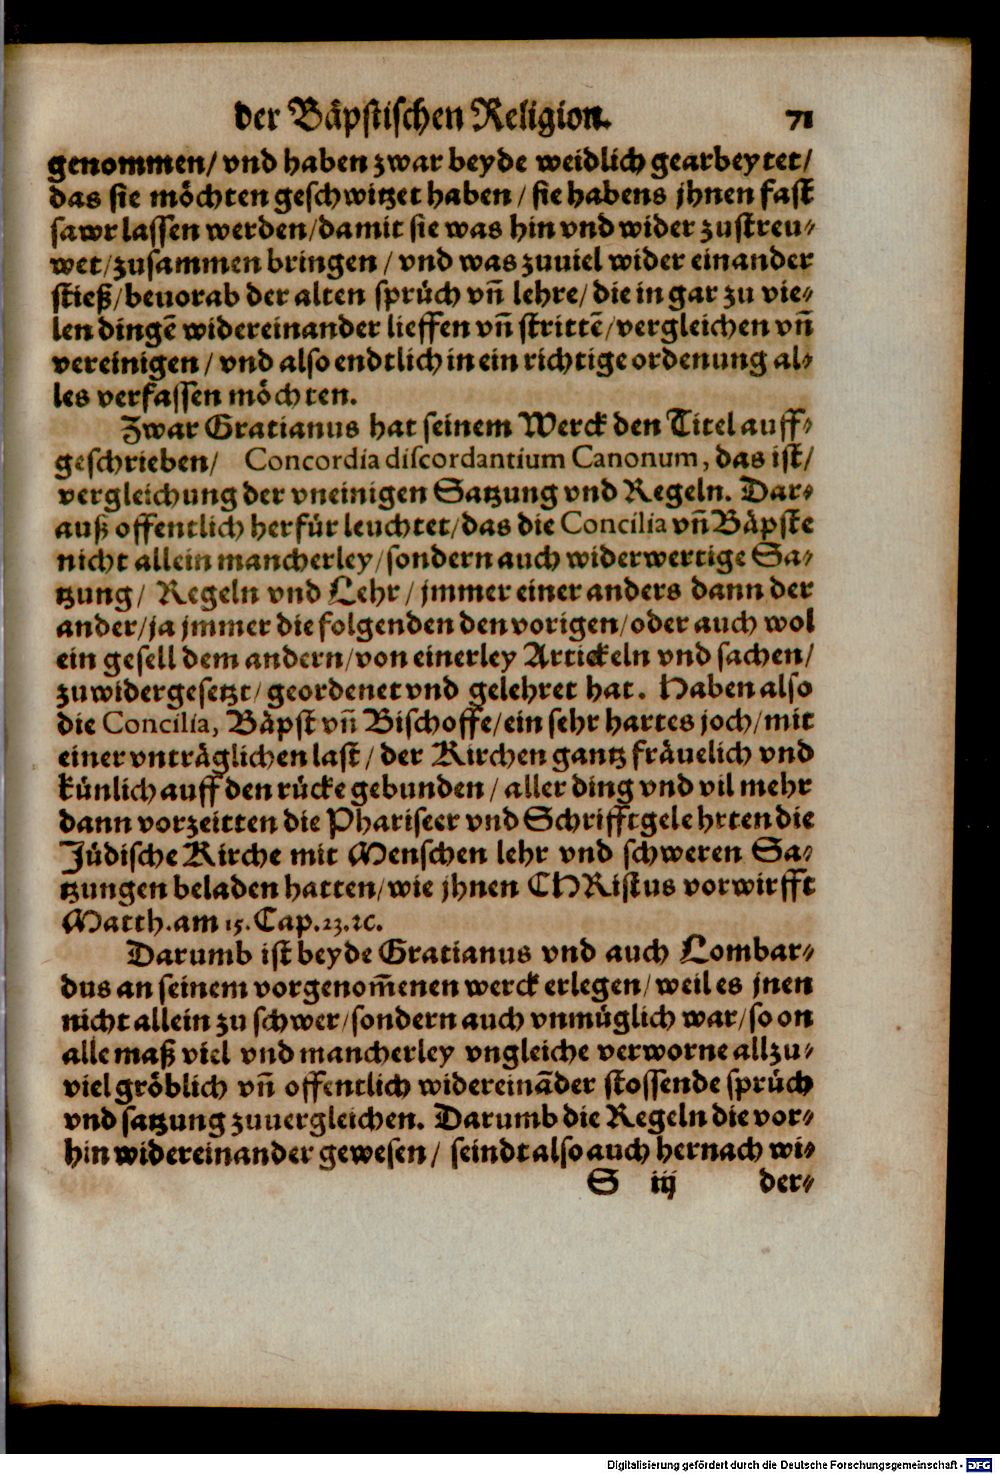 der Bäpstischen Religion. 71
genommen/ vnd haben zwar beyde weidlich gearbeytet/
das sie möchten geschwitzet haben/ sie habens jhnen fast
sawr lassen werden/ damit sie was hin vnd wider zustreu⸗
wet/ zusammen bringen/ vnd was zuuiel wider einander
stieß/ beuorab der alten sprüch vñ lehre/ die in gar zu vie⸗
len dingē widereinander lieffen vñ strittē/ vergleichen vñ
vereinigen/ vnd also endtlich in ein richtige ordenung al⸗
les verfassen möchten.
Zwar Gratianus hat seinem Werck den Titel auff⸗
geschrieben/ Concordia discordantium Canonum, das ist/
vergleichung der vneinigen Satzung vnd Regeln. Dar⸗
auß offentlich herfür leuchtet/ das die Concilia vñ Bäpste
nicht allein mancherley/ sondern auch widerwertige Sa⸗
tzung/ Regeln vnd Lehr/ jmmer einer anders dann der
ander/ ja jmmer die folgenden den vorigen/ oder auch wol
ein gesell dem andern/ von einerley Artickeln vnd sachen/
zuwidergesetzt/ geordenet vnd gelehret hat. Haben also
die Concilia, Bäpst vñ Bischoffe/ ein sehr hartes joch/ mit
einer vnträglichen last/ der Kirchen gantz fräuelich vnd
künlich auff den rücke gebunden/ aller ding vnd vil mehr
dann vorzeitten die Phariseer vnd Schrifftgelehrten die
Jüdische Kirche mit Menschen lehr vnd schweren Sa⸗
tzungen beladen hatten/ wie jhnen CHRistus vorwirfft
Matth. am 15. Cap. 23. ꝛc.
Darumb ist beyde Gratianus vnd auch Lombar⸗
dus an seinem vorgenom̃enen werck erlegen/ weil es jnen
nicht allein zu schwer/ sondern auch vnmüglich war/ so on
alle maß viel vnd mancherley vngleiche verworne allzu⸗
viel gröblich vñ offentlich widereināder stossende sprüch
vnd satzung zuuergleichen. Darumb die Regeln die vor⸗
hin widereinander gewesen/ seindt also auch hernach wi⸗
S iij der⸗
Digitalisierung gefördert durch die Deutsche Forschungsgemeinschaft - DFG